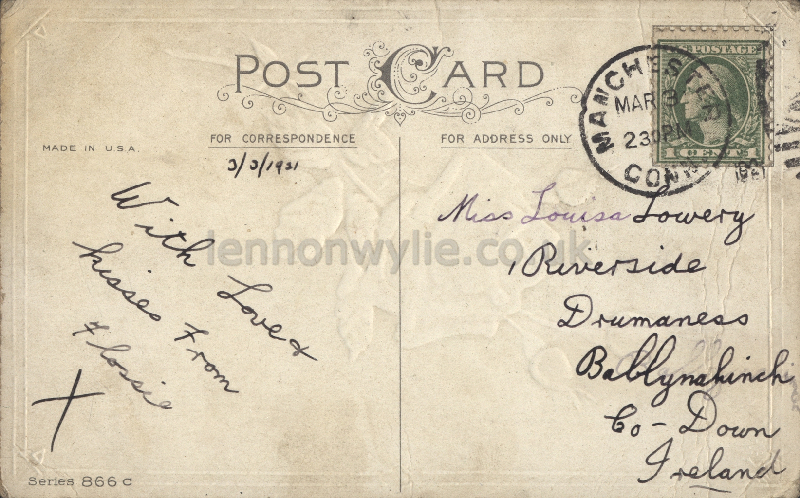 POST CARD
FOR CORRESPONDENCE
FOR ADDRESS ONLY
MADE IN U.S.A.
3/3/1921
With Love &
kisses From
Flossie
X
Miss Louisa Lowery
1 Riverside
Drumaness
Ballynahinch
Co-Down
Ireland
MANCHESTER
MAR 3
230PM
CONN.
1921
POSTAGE
1 CENT 1
lennonwylie.co.uk
Series 866 C